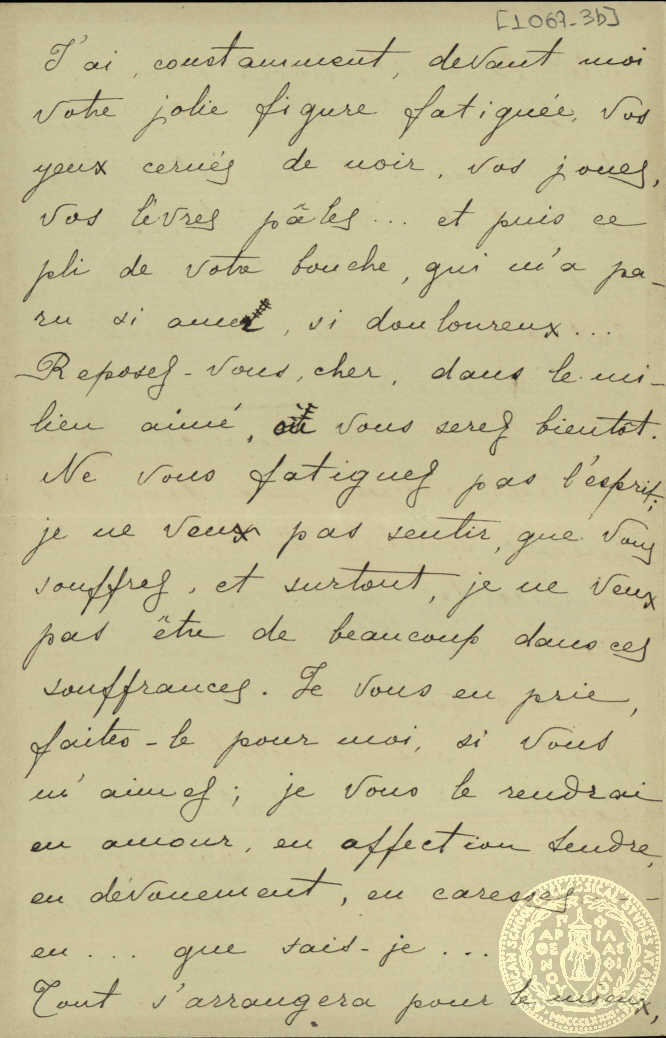 [1067-3b]
J'ai, constamment, devant moi
votre jolie figure fatiguée, vos
yeux cernés de noir, vos joues,
vos lèvres pâles... et puis ce
pli de votre bouche, qui m'a pa-
ru si amer, si douloureux...
Reposez-vous, cher, dans le mi-
lieu aimé, où vous serez bientôt.
Ne vous fatiguez pas l'esprit;
je ne veux pas sentir, que vous
souffrez, et surtout, je ne veux
pas être de beaucoup dans ces
souffrances. Je vous en prie,
faites-le pour moi, si vous
m'aimez; je vous le rendrai
en amour, en affection tendre,
en dévouement, en caresses...
en... que sais-je...
Tout s'arrangera pour le mieux,